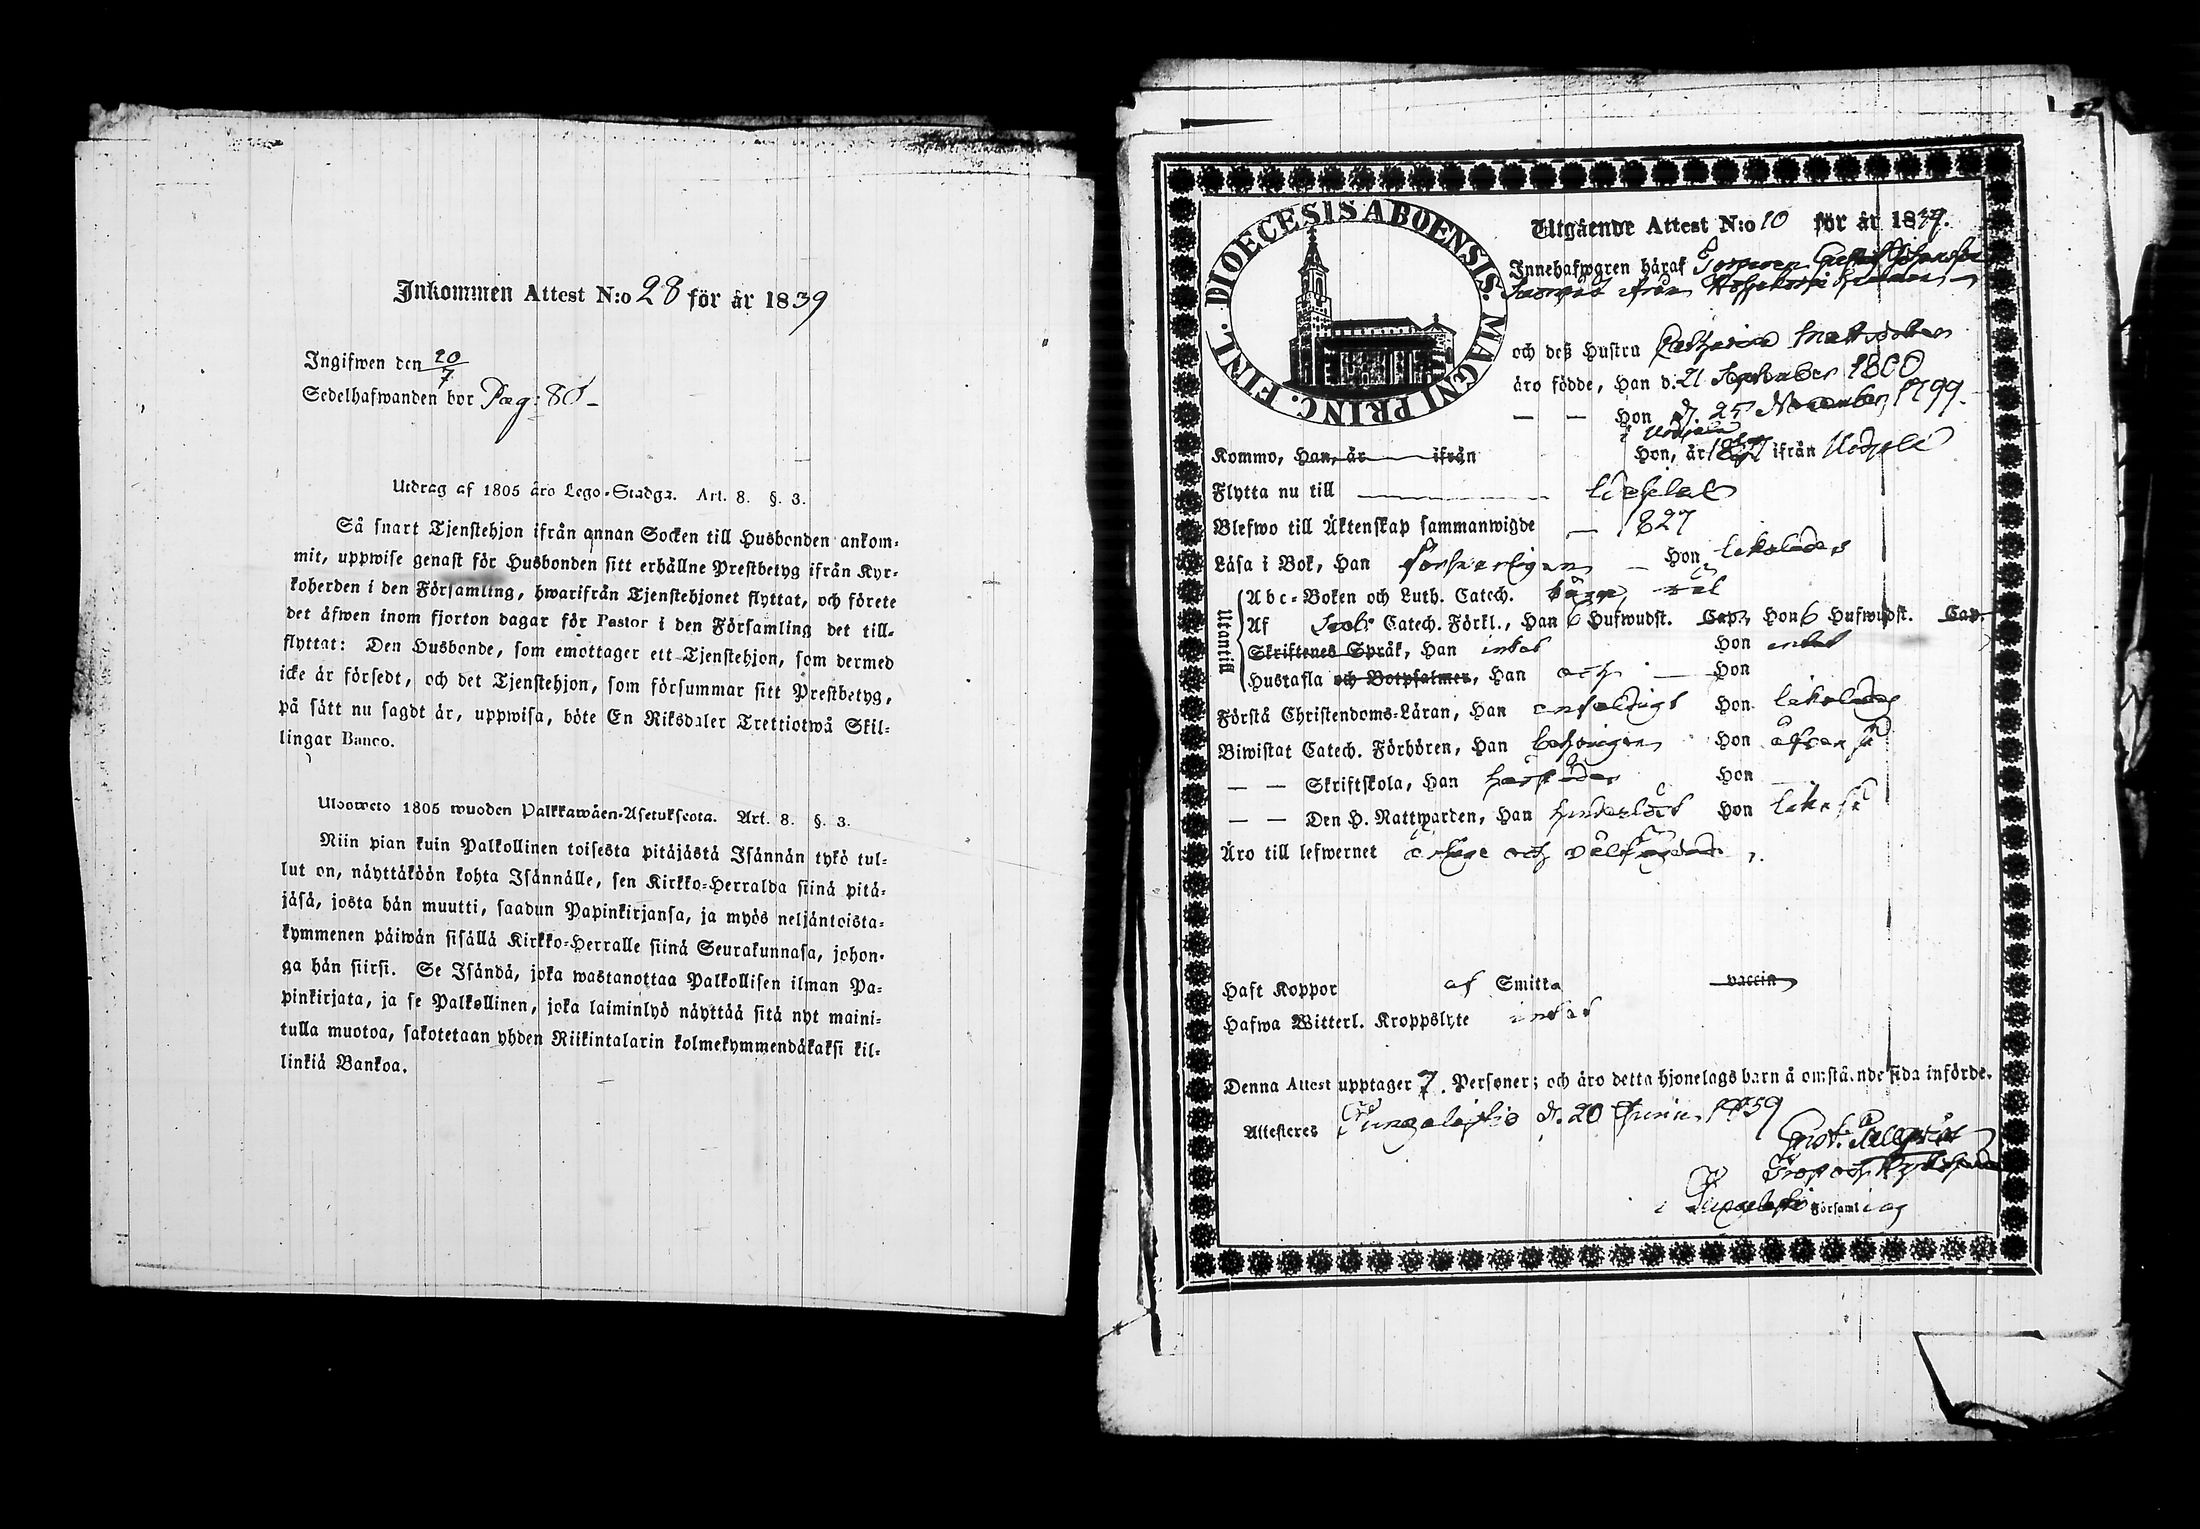 Inkommen Attest N:o 28 för år 1839
Ingifwen den 20/7
Sedelhafwanden bor Pag: 80
Utdrag af 1805 åro Lego-Stadga. Art. 8. §. 3.
Så snart Tjenstehjon ifrån annan Socken till Husbonden ankom-
mit, uppwise genast för Husbonden sitt erhållne Prestbetyg ifrån Kyr-
koherden i den Församling, hwarifrån Tjenstehjonet flyttat, och förete
det äfwen inom fjorton dagar för Pastor i den Församling det till-
flyttat: Den Husbonde, som emottager ett Tjenstehjon, som dermed
icke är försedt, och det Tjenstehjon, som försummar sitt Prestbetyg,
på sätt nu sagdt är, uppwisa, böte En Riksdaler Trettiotwå Skil-
lingar Banco.
Ulosweto 1805 wuoden Palkkawäen-Asetuksesta. Art. 8. §. 3.
Niin pian kuin Palkollinen toisesta pitäjästä Isännän tykö tul-
lut on, näyttäköön kohta Isännälle, sen Kirkko-Herralda siinä pitä-
jäsä, josta hän muutti, saadun Papinkirjansa, ja myös neljäntoista-
kymmenen päiwän sisällä Kirkko-Herralle siinä Seurakunnasa, johon-
ga hän siirsi. Se Isändä, joka wastanottaa Palkollisen ilman Pa-
pinkirjata, ja se Palkollinen, joka laiminlyö näyttää sitä nyt maini-
tulla muotoa, sakotetaan yhden Riikintalarin kolmekymmendäkaksi kil-
linkiä Bankoa.
DIOECESIS ABOENSIS. MAGNI PRINC. FINL.
Utgående Attest N:o 10 för år 1839.
Innehafwaren häraf Gustaf Johansson
ifrån
och deß Hustru Catharina Mattsdotter
äro födde, Han d. 21 September 1800
— — Hon d. 25 November 1799.
Kommo, Han, år ifrån Hon, år ifrån
Flytta nu till
Blefwo till Äktenskap sammanwigde — 1827
Läsa i Bok, Han försvarligen — Hon likaledes
Utantill
Abc-Boken och Luth. Catech. båda väl
Af Catech. Förkl., Han 6 Hufwudst. Cap., Hon 6 Hufwudst. Cap.
Skriftenes Språk, Han intet Hon intet
Hustafla och Botpsalmer, Han och — Hon
Förstå Christendoms-Läran, Han enfaldigt Hon likaledes
Biwistat Catech. Förhören, Han Hon äfven så
— — Skriftskola, Han Hon
— — Den H. Nattwarden, Han Hon lika så
Äro till lefwernet ärlige och välfrägdade.
Haft Koppor af Smitta vaccin
Hafwa Witterl. Kroppslyte intet
Denna Attest upptager 7. Personer; och äro detta hjonelags barn å omstående sida införde.
Attesteres Pungalaitio d. 20 Junii 1839
Prost och Kyrkoherde
i Församling